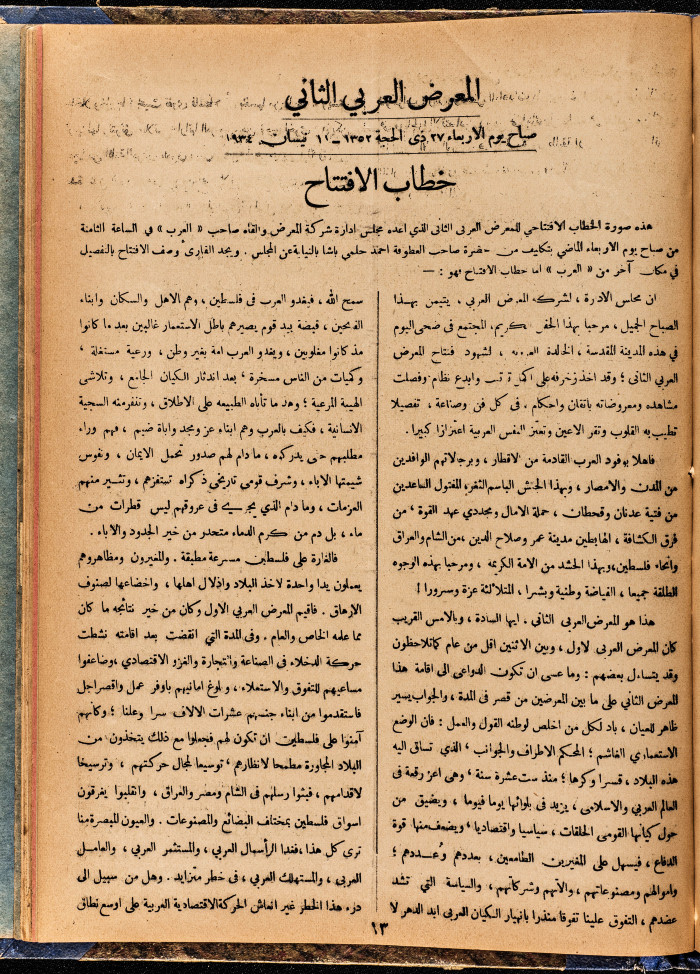 المعرض العربي الثاني
صباح يوم الاربعاء ٢٧ ذى الحجة ١٣٥٢ – ١١ نيسان ١٩٣٤
خطاب الافتتاح
هذه صورة الخطاب الافتتاحي للمعرض العربى الثانى الذي اعده مجلس ادارة شركة المعرض والقاه صاحب « العرب » في الساعة الثامنة
من صباح يوم الاربعاء الماضي بتكليف من حضرة صاحب العطوفة احمد حلمي باشا بالنيابة عن المجلس . ويجد القارئ وصف الافتتاح بالتفصيل
في مكان آخر من « العرب » اما خطاب الافتتاح فهو : —
ان مجلس الادرة ، لشركة المعرض العربي ، يتيمن بهذا
الصباح الجميل ، مرحبا بهذا الحفل الكريم، المجتمع فى ضحى اليوم
في هذه المدينة المقدسة ، الخالدة ، لشهود فتتاح المعرض
العربي الثانى ؛ وقد اخذ زخرفه على اكمل وابدع نظام وفصلت
مشاهده ومعروضاته باتقان واحكام ، فى كل فن وصناعة ، تفصيلا
تطيب به القلوب وتقر الاعين وتعتز النفس العربية اعتزازا كبيرا .
فاهلا بوفود العرب القادمة من الاقطار ، وبرجالاتهم الوافدين
من المدن والامصار ، وبهذا الجيش الباسم الثغر، المفتول الساعدين
من فتية عدنان وقحطان ، حملة الامال ومجددي عهد القوة ، من
فرق الكشافة ، الهابطين مدينة عمر وصلاح الدين ، من الشام والعراق
وانحاء فلسطين، وبهذا الحشد من الامة الكريمه ، ومرحبا بهذه الوجوه
الطلقة جميعا ، الفياضة وطنية وبشرا ، المتلالئة عزة وسرورا !
هذا هو المعرض العربى الثاني . ايها السادة ، وبالامس القريب
كان المعرض العربى لاول ، وبين الاثنين اقل من عام كما تلاحظون
وقد يتساءل بعضهم : وما عسى ان تكون الدواعى الى اقامة هذا
المعرض الثاني على ما بين المعرضين من قصر فى المدة ، والجواب يسير
ظاهر للعيان ، باد لكل من اخلص لوطنه القول والعمل : فان الوضع
الاستعماري الغاشم ؛ المحكم الاطراف والجوانب ، الذي تساق اليه
هذه البلاد ، قسرا وكرها ؛ منذ ست عشرة سنة ، وهى اعز رقعة فى
العالم العربي والاسلامى ، يزيد فى بلوائها يوما فيوما ، ويضيق من
حول كيانها القومى الحلقات ، سياسيا واقتصاديا ، ويضعف منها قوة
الدفاع ، فيسهل على المغيرين الطامعين ، بعددهم وعُددهم ؛
واموالهم ومصنوعاتهم ، وآلاتهم وشركاتهم ، والسياسة التي تشد
عضدهم ، التفوق علينا تفوقا منذرا بانهيار الكيان العربى ابد الدهر لا
سمح الله ، فيغدو العرب فى فلسطين ، وهم الاهل والسكان وابناء
الفاتحين ، قبضة بيد قوم يصيرهم باطل الاستعمار غالبين بعد ما كانوا
مذ كانوا مغلوبين ، ويغدو العرب امة بغير وطن ، ورعية مستغلة ،
وكميات من الناس مسخرة ، بعد اندثار الكيان الجامع ، وتلاشى
الهيبة المرعية ؛ وهذ ما تأباه الطبيعه على الاطلاق ، وتنفر منه السجية
الانسانية ، فكيف بالعرب وهم ابناء عز ومجد واباة ضيم ، فهم وراء
مطلبهم حتى يدركوه ، ما دام لهم صدور تحمل الايمان ، ونفوس
شيمتها الاباء ، وشرف قومي تاريخى ذكراه تستفزهم ، وتستثير منهم
العزمات ، وما دام الذي يجري فى عروقهم ليس قطرات من
ماء ، بل دم من كرم الدماء متحدر من خير الجدود والاباء .
فالغارة على فلسطين مسرعة مطبقة . والمغيرون ومظاهروهم
يعملون يدا واحدة لاخذ البلاد واذلال اهلها ، واخضاعها لصنوف
الارهاق . فاقيم المعرض العربي الاول وكان من خير نتائجه ما كان
مما علمه الخاص والعام . وفى المدة التي انقضت بعد اقامته نشطت
حركة الدخلاء فى الصناعة والتجارة والغزو الاقتصادي ، وضاعفوا
مساعيهم للتفوق والاستعلاء ، وبلوغ امانيهم باوفر عمل واقصر اجل
فاستقدموا من ابناء جنسهم عشرات الالاف سرا وعلنا ؛ وكأنهم
آمنوا على فلسطين ان تكون لهم فجعلوا مع ذلك يتخذون من
البلاد المجاورة مطمحا لانظارهم ، توسيعا لمجال حركتهم ، وترسيخا
لاقدامهم ، فبثوا رسلهم فى الشام ومصر والعراق ، وانقلبوا يغرقون
اسواق فلسطين بمختلف البضائع والمصنوعات . والعيون المبصرة منا
ترى كل هذا ، فغدا الرأسمال العربي ، والمستثمر العربي ، والعامل
العربى ، والمستهلك العربي ، فى خطر متزايد . وهل من سبيل الى
درء هذا الخطر غير انعاش الحركة الاقتصادية العربية على اوسع نطاق
١٣